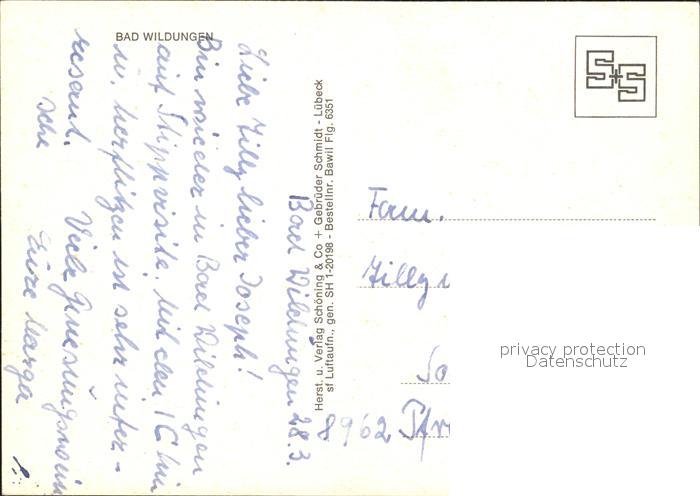 BAD WILDUNGEN
S+S
Herst. u. Verlag Schöning & Co + Gebrüder Schmidt - Lübeck
sf Luftaufn., gen. SH 1-20198 - Bestellnr. Bawil Flg. 6351
Bad Wildungen 28.3.
Liebe Zilly lieber Joseph!
Bin wieder in Bad Wildungen
auf Stippvisite. Mit den IC hin
u. herflitzen ist sehr inter-
resant.
Viele Genesungswün
sche
Eure Marga
Fam.
Zilly
So
8962 Pfr
privacy protection
Datenschutz